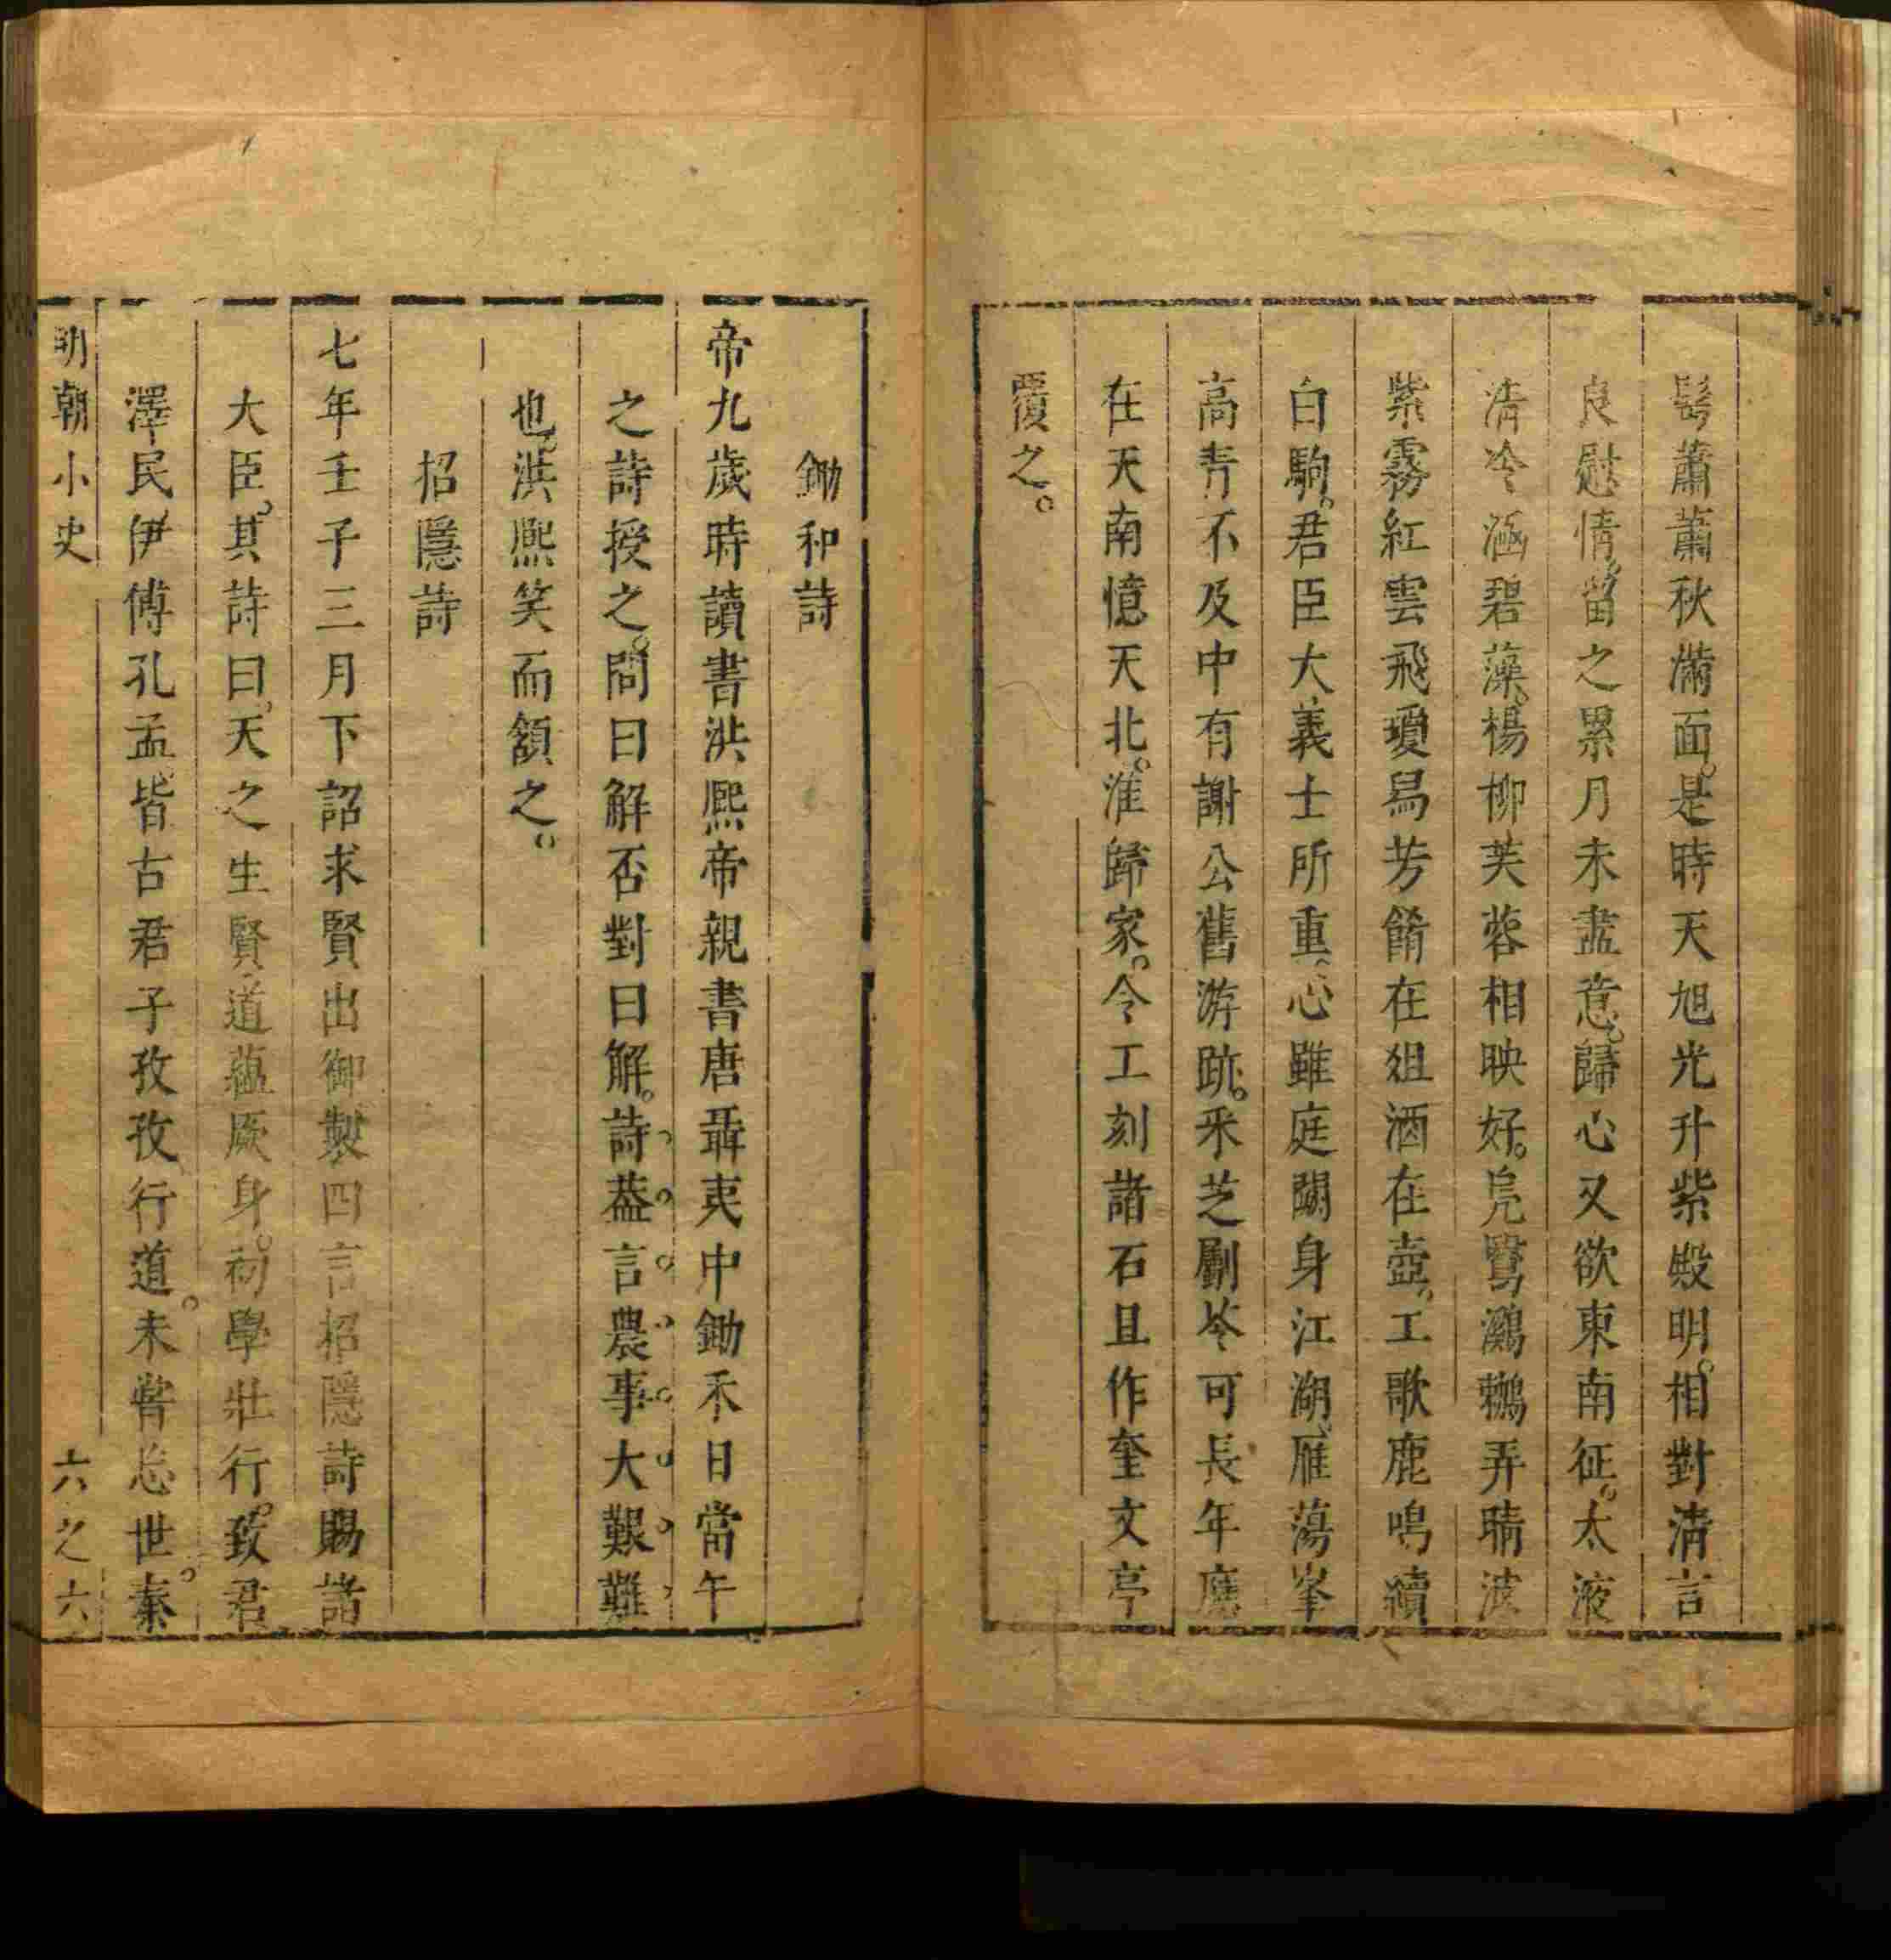 髩蕭蕭秋滿面是時天旭光升紫殿明相對清言
良慰情留之累月未盡意歸心又欲東南征太液
清冷涵碧藻楊柳芙蓉相映好鳬鷖鸂鶒弄晴波
紫霧紅雲飛瓊舄芳餚在俎酒在壺工歌鹿鳴續
白駒君臣大義士所重心雖庭闕身江湖雁蕩峯
高青不及中有謝公舊游跡采芝劚苓可長年應
在天南憶天北淮歸家令工刻諸石且作奎文亭
覆之
鋤和詩
帝九歲時讀書洪熈帝親書唐聶夷中鋤禾日當午
之詩授之問曰解否對曰解詩葢言農事大艱難
也洪熈笑而頷之
招隱詩
七年壬子三月下詔求賢出御製四言招隱詩賜諸
大臣其詩曰天之生賢道蘊厥身初學壯行致君
澤民伊傅孔孟皆古君子孜孜行道未嘗忘世秦
明朝小史
六之六